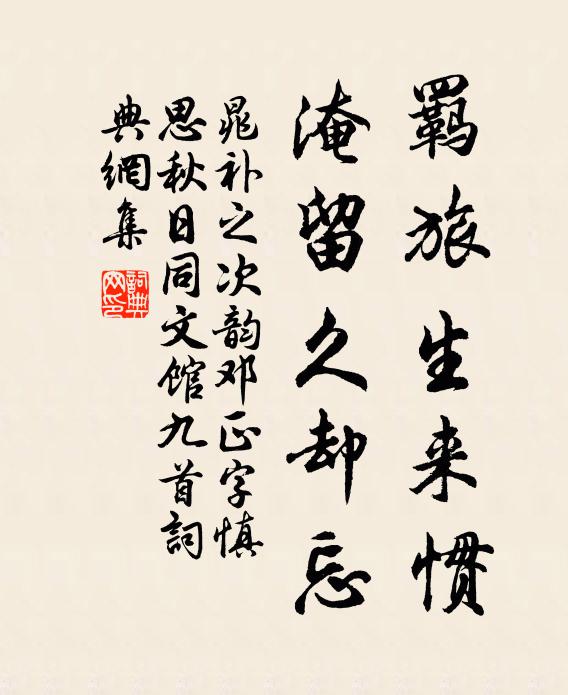 羁旅生来惯
淹留久却忘
晁补之次韵邓正字慎
思秋日同文馆九首詞
典網集
詞典网印